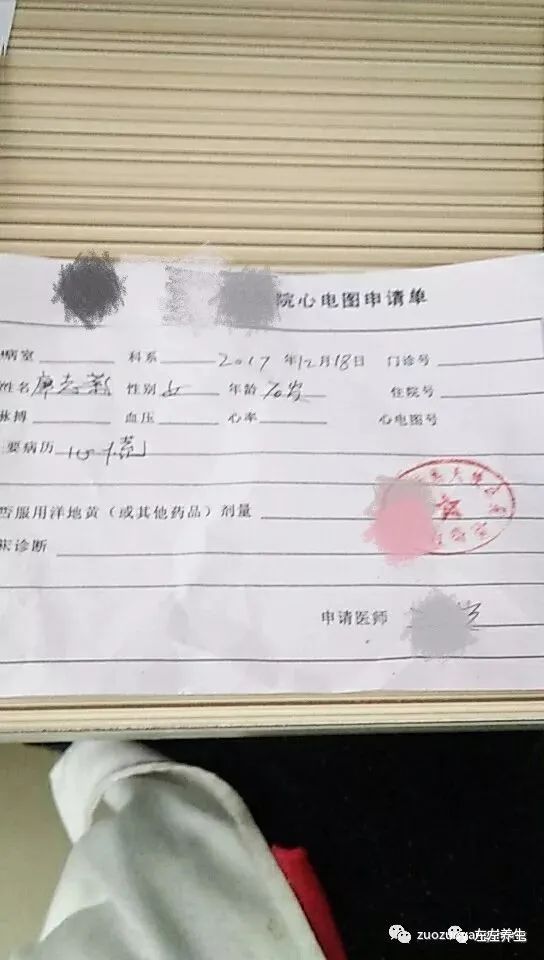 院心电图申请单
病室 科系 2017 年12月18日 门诊号
姓名 性别 女 年龄 70岁 住院号
脉搏 血压 心率 心电图号
要病历 心慌
否服用洋地黄（或其他药品）剂量
床诊断
申请医师
左左养生